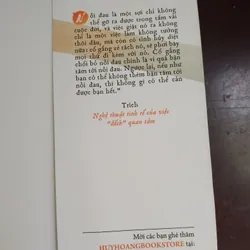 Nỗi đau là một sợi chỉ không
thể gỡ ra được trong tấm vải
cuộc đời, và việc giật nó ra không
chỉ là một việc làm không tưởng
thôi đâu, mà còn có tính hủy diệt
nữa: cố gắng xé tách nó, sẽ phơi bày
mọi thứ đi kèm với nó. Cố gắng
chối bỏ nỗi đau chính là vì quá bận
tâm tới nỗi đau. Ngược lại, nếu như
bạn có thể không thèm bận tâm tới
nỗi đau, thì không gì có thể cản
được bạn hết."
Trích:
Nghệ thuật tinh tế của việc
"đếch" quan tâm
Mời các bạn ghé thăm
HUYHOANGBOOKSTORE tại: